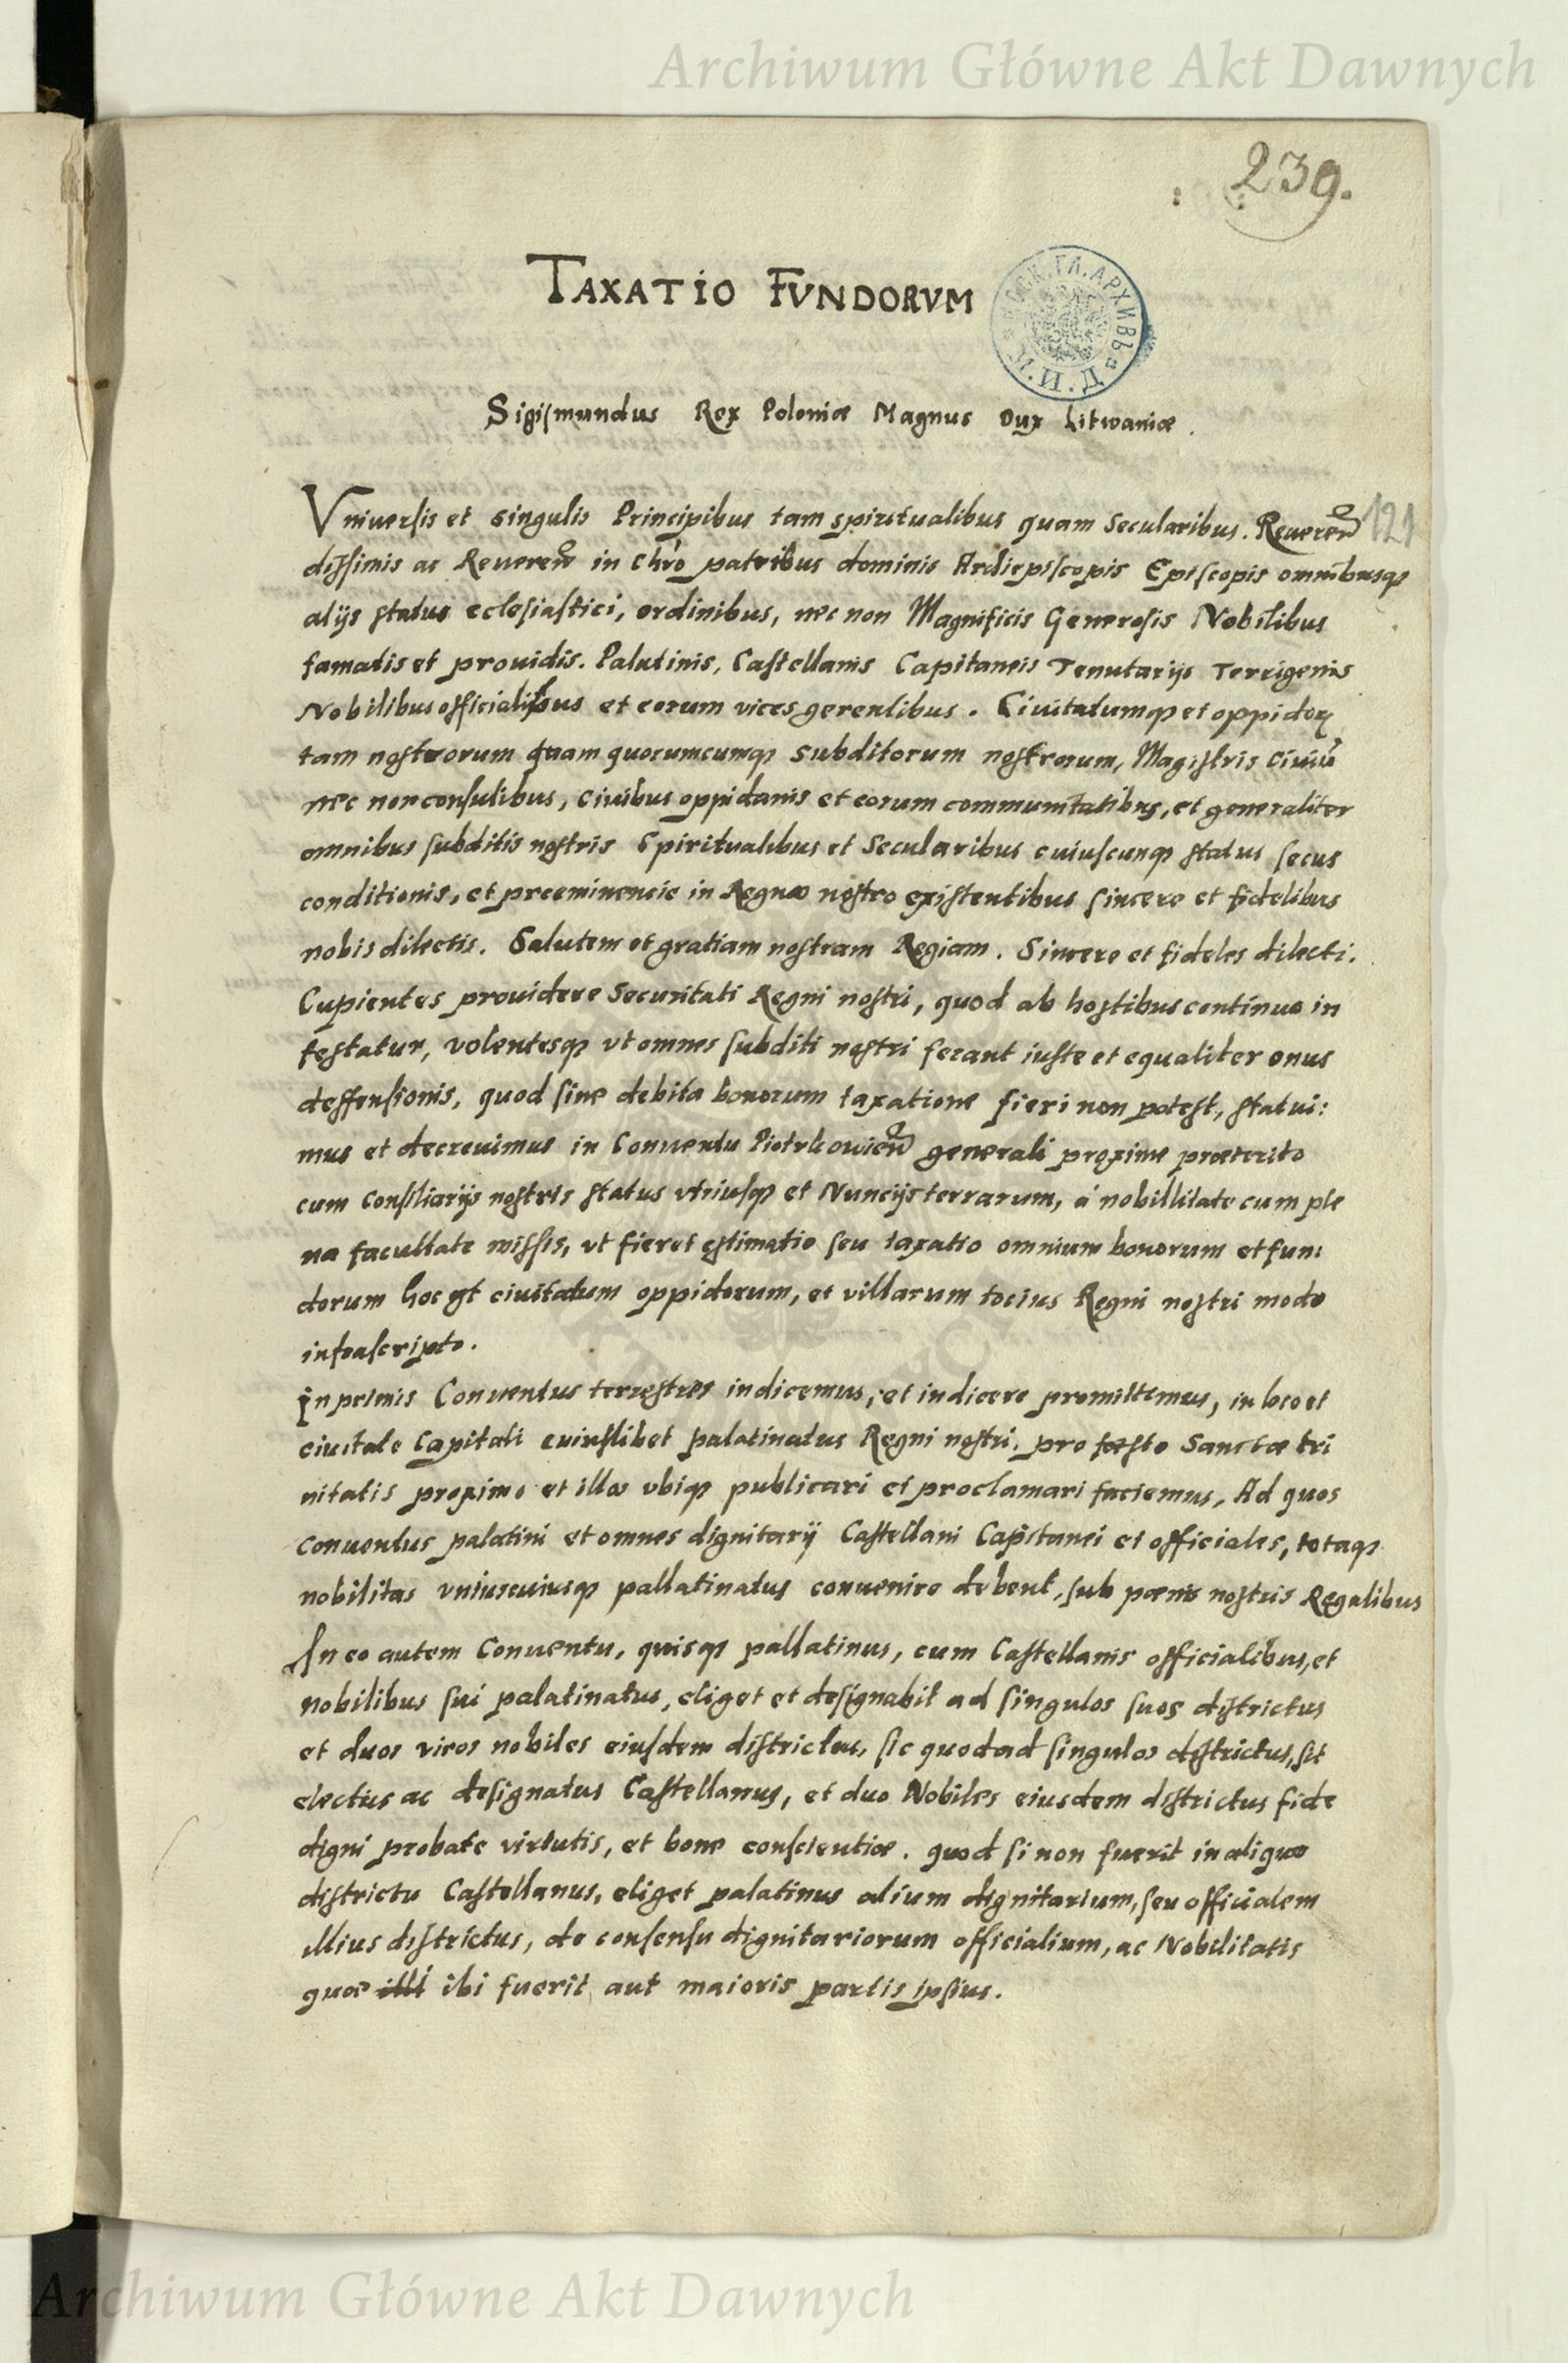 Archiwum Główne Akt Dawnych
239.
TAXATIO FVNDORVM
МОСК. ГЛ. АРХИВЪ М. И. Д.
Sigismundus Rex Poloniæ Magnus Dux Litwaniæ.
Vniuersis et singulis Principibus tam spiritualibus quam Secularibus. Reueren
121
dissimis ac Reueren in Chro patribus dominis Archiepiscopis Episcopis omnibusq
alijs status eclesiastici, ordinibus, nec non Magnificis Generosis Nobilibus
famatis et prouidis. Palatinis, Castellanis Capitaneis Tenutarijs Terrigenis
Nobilibus officialibus et eorum vices gerentibus. Ciuitatumq et oppidoꝝ
tam nostrorum quam quorumcumq subditorum nostrorum, Magistris Ciuiū
nec non consulibus, ciuibus oppidanis et eorum communitatibus, et generaliter
omnibus subditis nostris Spiritualibus et Secularibus cuiuscunq status secus
conditionis, et preeminencie in Regno nostro existentibus sincere et fidelibus
nobis dilectis. Salutem et gratiam nostram Regiam. Sincere et fideles dilecti.
Cupientes prouidere Securitati Regni nostri, quod ab hostibus continuo in
festatur, volentesq vt omnes subditi nostri ferant iuste et equaliter onus
deffensionis, quod sine debita bonorum taxatione fieri non potest, statui:
mus et decreuimus in Conuentu Piotrkowien generali proxime præterito
cum consiliarijs nostris status vtriusq et Nuncijs terrarum, á nobillitate cum ple
na facultate missis, vt fieret estimatio seu taxatio omnium bonorum et fun:
dorum hoc est ciuitatum oppidorum, et villarum tocius Regni nostri modo
infrascripto.
In primis Conuentus terrestres indicemus, et indicere promittimus, in loco et
ciuitate Capitali cuiuslibet palatinatus Regni nostri, pro festo Sanctæ tri
nitatis proximo et illos vbiq publicari et proclamari faciemus, Ad quos
conuentus palatini et omnes dignitarij Castellani Capitanei et officiales, totaq
nobilitas vniuscuiusq pallatinatus conuenire debent, sub pœnis nostris Regalibus
In eo autem Conuentu, quisq pallatinus, cum Castellanis officialibus, et
nobilibus sui palatinatus, eliget et designabit ad singulos suos districtus
et duos viros nobiles eiusdem districtus, sic quod ad singulos districtus, sit
electus ac designatus Castellanus, et duo Nobiles eiusdem districtus fide
digni probate virtutis, et bone conscientiæ. quod si non fuerit in aliquo
districtu Castellanus, eliget palatinus alium dignitarium, seu officialem
illius districtus, de consensu dignitariorum officialium, ac Nobilitatis
quæ illi ibi fuerit, aut maioris partis ipsius.
Archiwum Główne Akt Dawnych